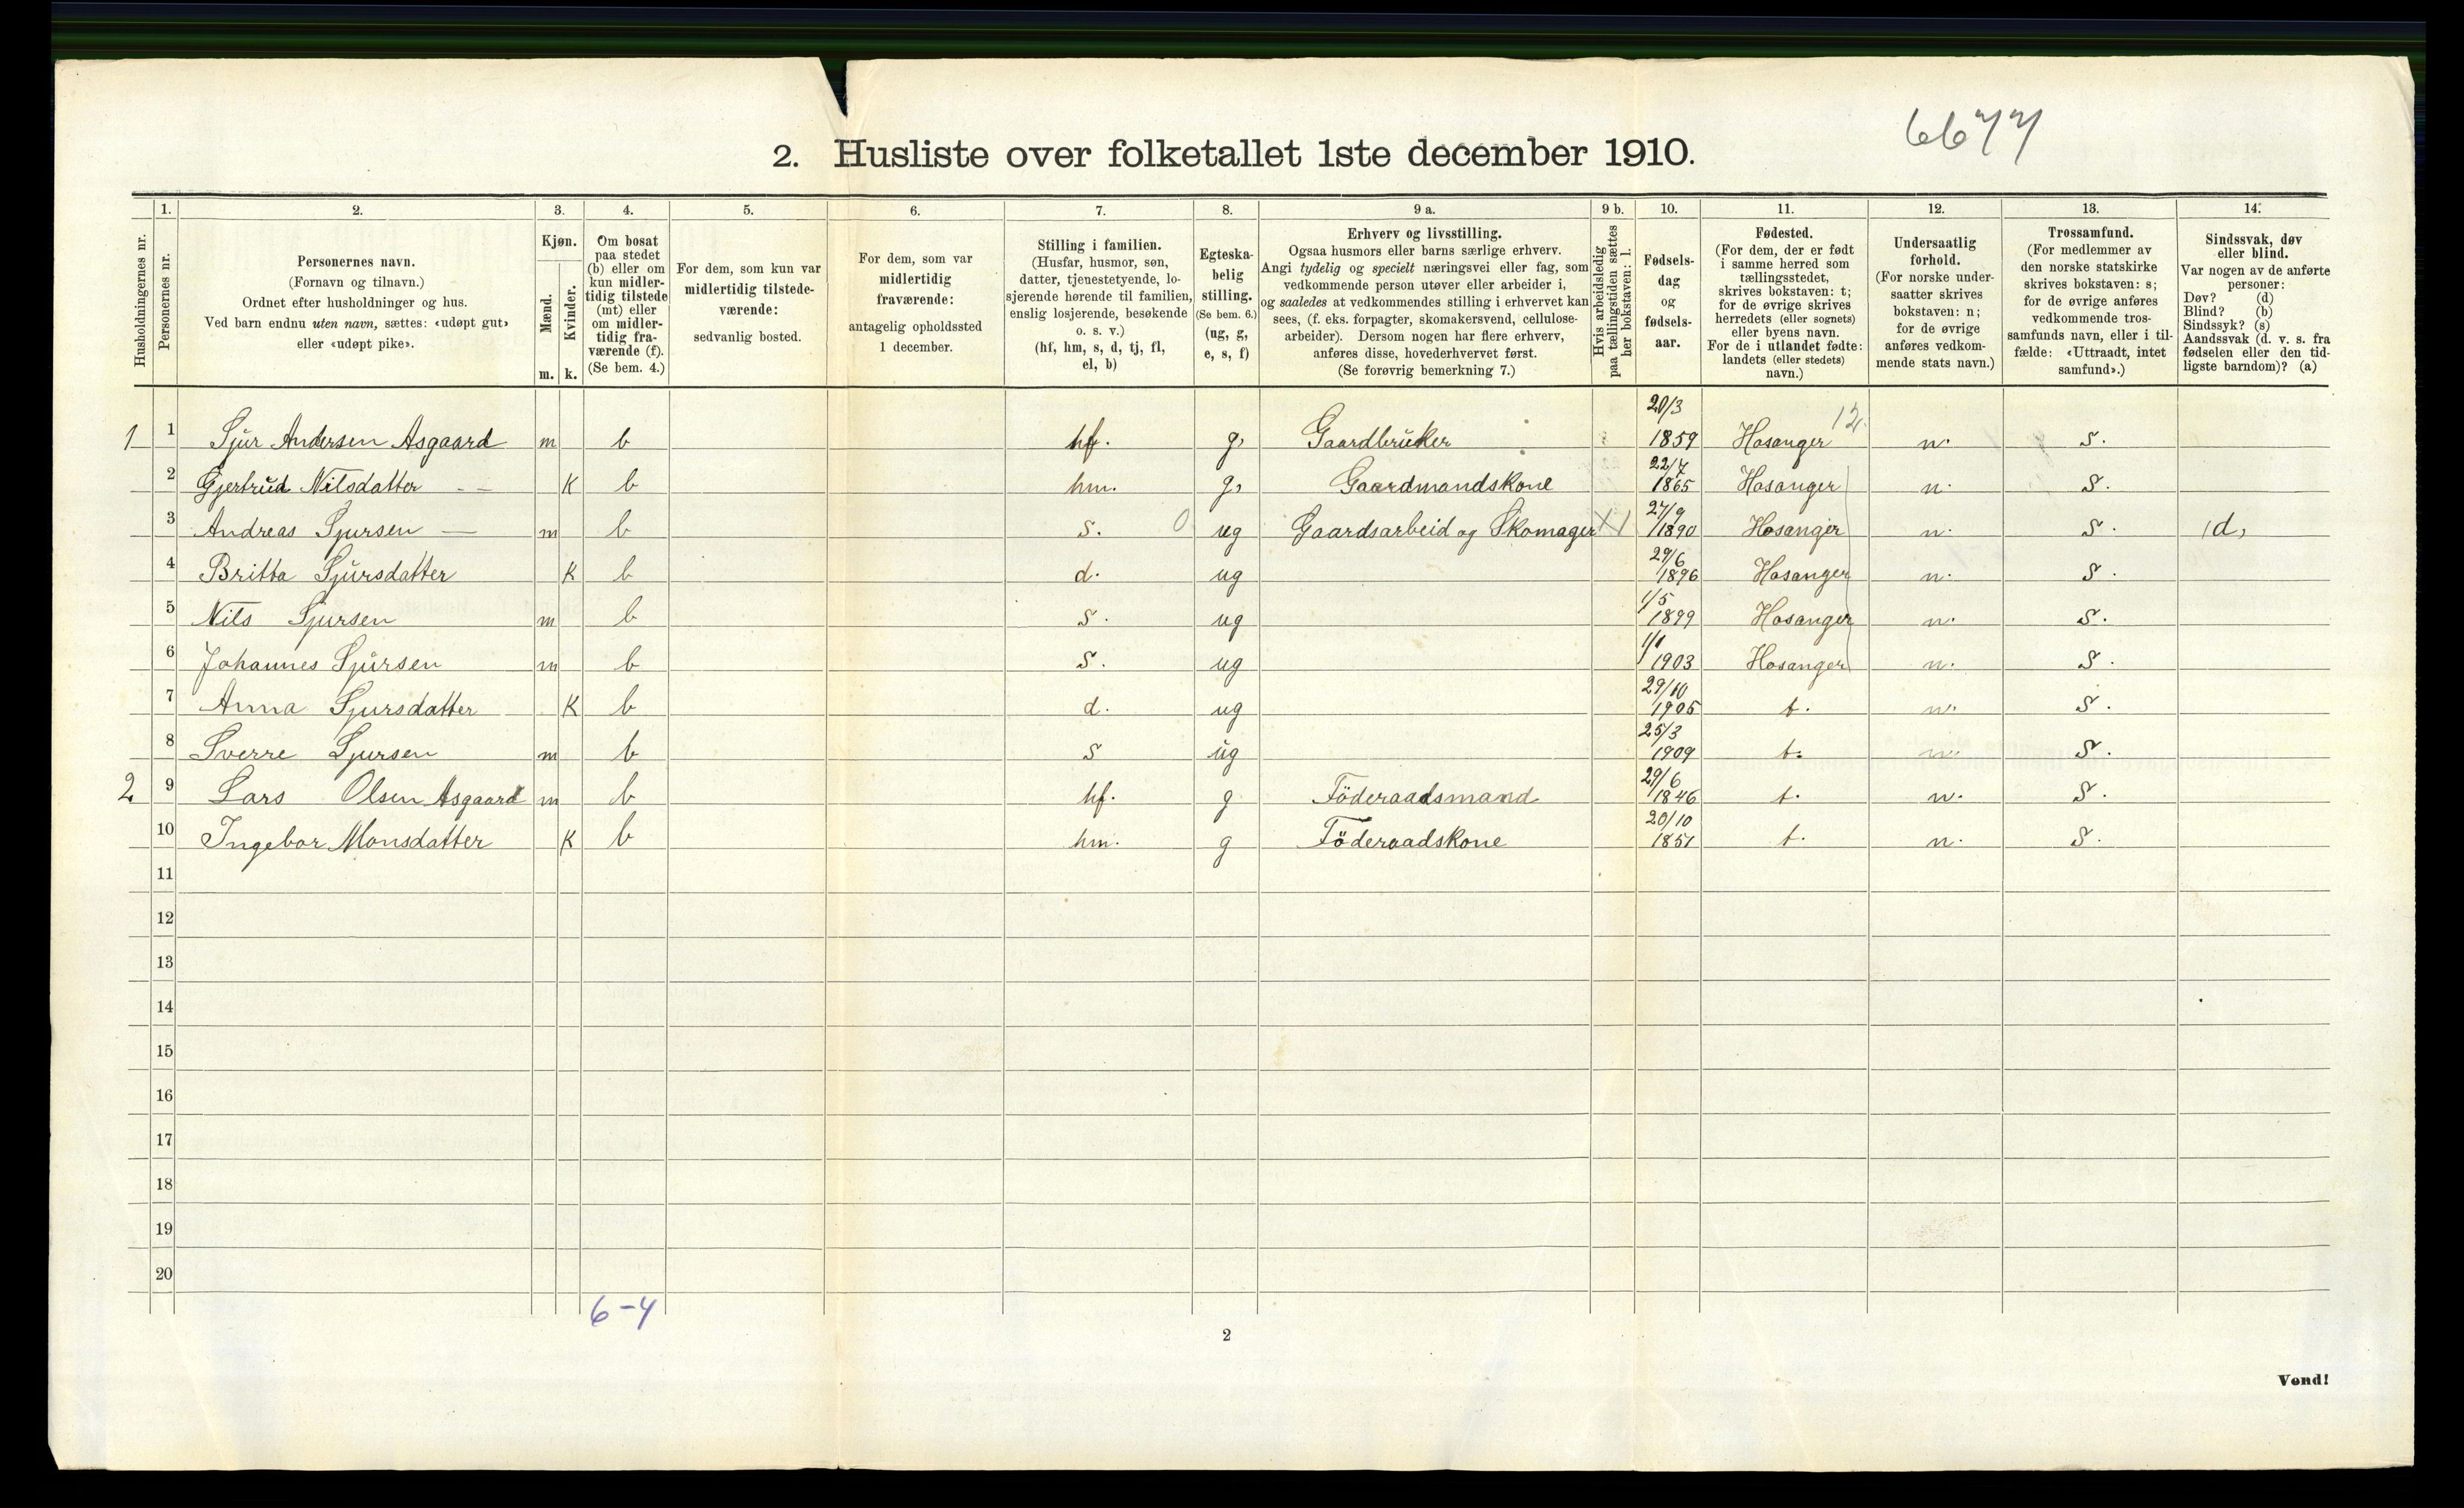 6677
2. Husliste over folketallet 1ste december 1910.
Husholdningernes nr.
1.
Personernes nr.
2.
Personernes navn.
(Fornavn og tilnavn.)
Ordnet efter husholdninger og hus.
Ved barn endnu uten navn, sættes: «udøpt gut»
eller «udøpt pike».
3.
Kjøn.
Mænd.
Kvinder.
m. k.
4.
Om bosat
paa stedet
(b) eller om
kun midler-
tidig tilstede
(mt) eller
om midler-
tidig fra-
værende (f).
(Se bem. 4.)
5.
For dem, som kun var
midlertidig tilstede-
værende:
sedvanlig bosted.
6.
For dem, som var
midlertidig
fraværende:
antagelig opholdssted
1 december.
7.
Stilling i familien.
(Husfar, husmor, søn,
datter, tjenestetyende, lo-
sjerende hørende til familien,
enslig losjerende, besøkende
o. s. v.)
(hf, hm, s, d, tj, fl,
el, b)
8.
Egteska-
belig
stilling.
(Se bem. 6.)
(ug, g,
e, s, f)
9 a.
Erhverv og livsstilling.
Ogsaa husmors eller barns særlige erhverv.
Angi tydelig og specielt næringsvei eller fag, som
vedkommende person utøver eller arbeider i,
og saaledes at vedkommendes stilling i erhvervet kan
sees, (f. eks. forpagter, skomakersvend, cellulose-
arbeider). Dersom nogen har flere erhverv,
anføres disse, hovederhvervet først.
(Se forøvrig bemerkning 7.)
9 b.
Hvis arbeidsledig
paa tællingstiden sættes
her bokstaven: l.
10.
Fødsels-
dag
og
fødsels-
aar.
11.
Fødested.
(For dem, der er født
i samme herred som
tællingsstedet,
skrives bokstaven: t;
for de øvrige skrives
herredets (eller sognets)
eller byens navn.
For de i utlandet fødte:
landets (eller stedets)
navn.)
12.
Undersaatlig
forhold.
(For norske under-
saatter skrives
bokstaven: n;
for de øvrige
anføres vedkom-
mende stats navn.)
13.
Trossamfund.
(For medlemmer av
den norske statskirke
skrives bokstaven: s;
for de øvrige anføres
vedkommende tros-
samfunds navn, eller i til-
fælde: «Uttraadt, intet
samfund».)
14.
Sindssvak, døv
eller blind.
Var nogen av de anførte
personer:
Døv? (d)
Blind? (b)
Sindssyk? (s)
Aandssvak (d. v. s. fra
fødselen eller den tid-
ligste barndom)? (a)
1 1 Sjur Andersen Asgaard m b hf. g, Gaardbruker 20/3 1859 Hosanger 12. n. S.
2 Gjertrud Nilsdatter - - K b hm. g, Gaardmandskone 22/7 1865 Hosanger n. S.
3 Andreas Sjursen — m b s. 0 ug Gaardsarbeid og Skomager X1 27/9 1890 Hosanger n. S. d,
4 Britta Sjursdatter K b d. ug 29/6 1896 Hosanger n. S.
5 Nils Sjursen m b S. ug 1/5 1899 Hosanger n. S.
6 Johannes Sjursen m b S. ug 1/1 1903 Hosanger n. S.
7 Anna Sjursdatter K b d. ug 29/10 1905 t. n. S.
8 Sverre Sjursen m b S ug 25/3 1909 t. n. S.
2 9 Lars Olsen Asgaard m b hf. g Föderaadsmand 29/6 1846 t. n. S.
10 Ingebor Monsdatter K b hm. g Föderaadskone 20/10 1851 t. n. S.
11
12
13
14
15
16
17
18
19
20
6-4
2
Vend!